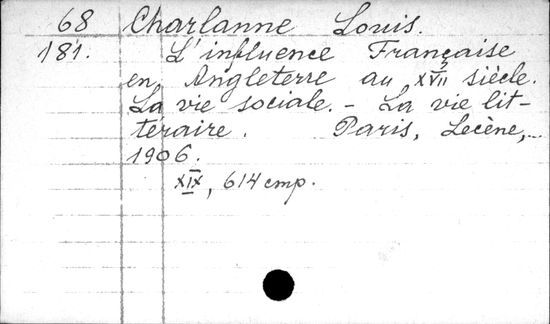 68 Charlanne Louis.
181. L'influence Française
en Angleterre au XVII siècle.
La vie sociale. - La vie lit-
téraire. Paris, Lecène,
1906.
XIX, 614 стр.